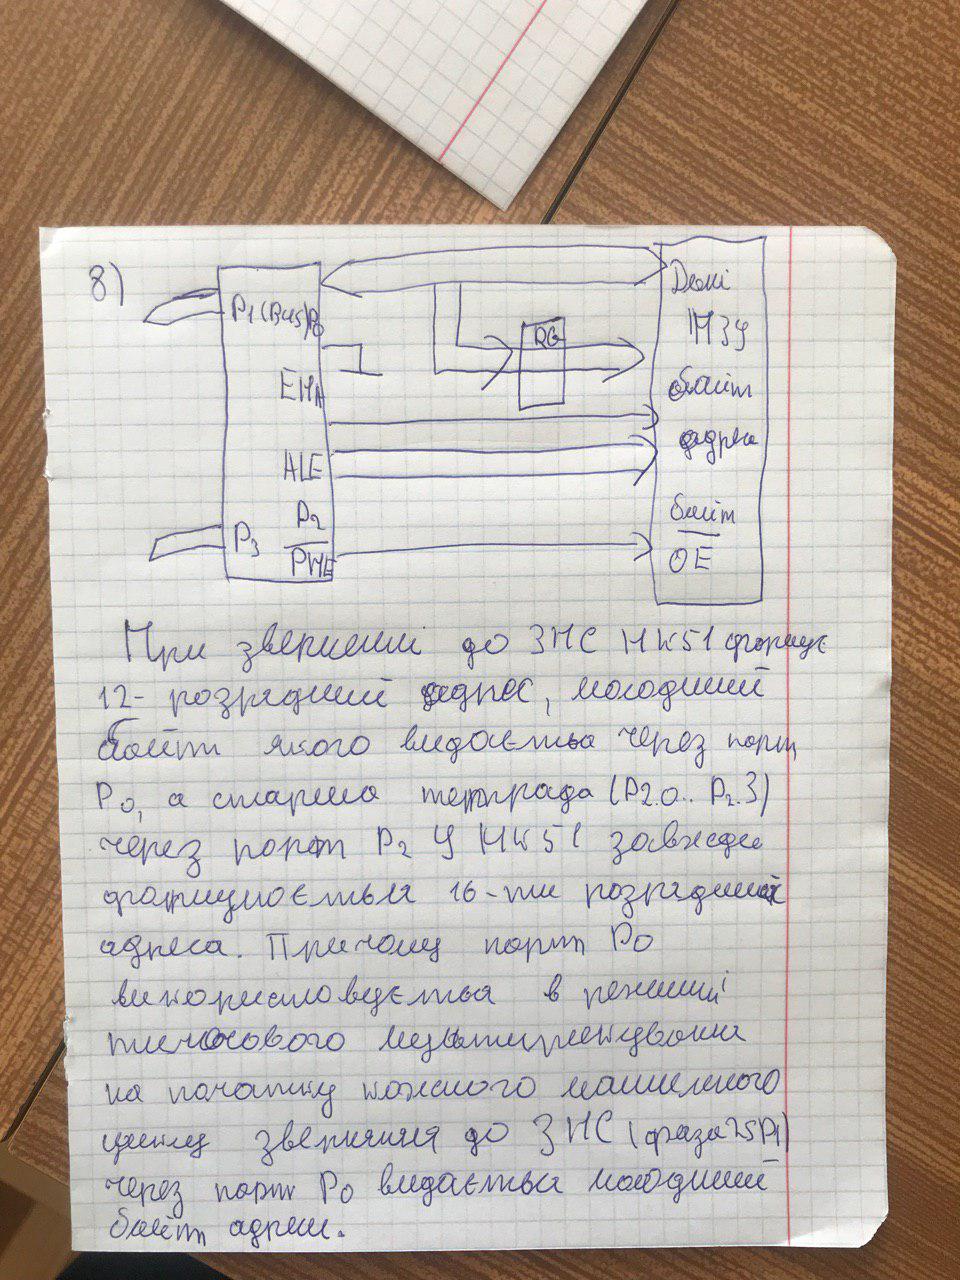 8)
P1(Bus)P0
EMA
ALE
P2
P3
PME
RG
Дані
ІМЗУ
байт
адреса
байт
OE
При зверненні до ЗПС МК51 формує
12-розрядний адрес, молодший
байт якого видається через порт
P0, а старша тетрада (P2.0.. P2.3)
через порт P2 У МК51 завжди
формується 16-ти розрядна
адреса. Причому порт P0
використовується в режимі
тимчасового мультиплексування
на початку кожного машинного
циклу звернення до ЗПС (фаза 2SP1)
через порт P0 видається молодший
байт адреси.